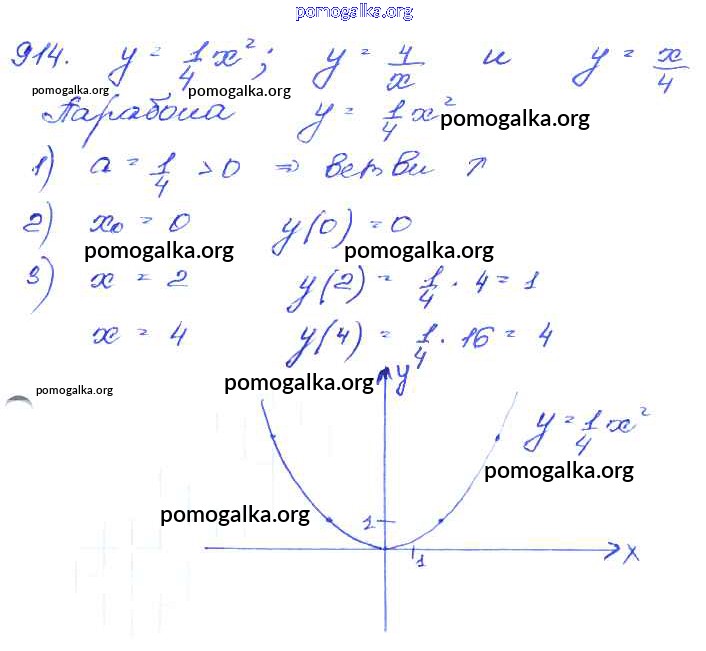 pomogalka.org
914. y = 1/4 x²; y = 4/x и y = x/4
pomogalka.org pomogalka.org
Парабола y = 1/4 x² pomogalka.org
1) a = 1/4 > 0 ⇒ ветви ↑
2) x₀ = 0 y(0) = 0
pomogalka.org pomogalka.org
3) x = 2 y(2) = 1/4 · 4 = 1
x = 4 y(4) = 1/4 · 16 = 4
pomogalka.org y
pomogalka.org
y = 1/4 x²
pomogalka.org
pomogalka.org
1
1 x